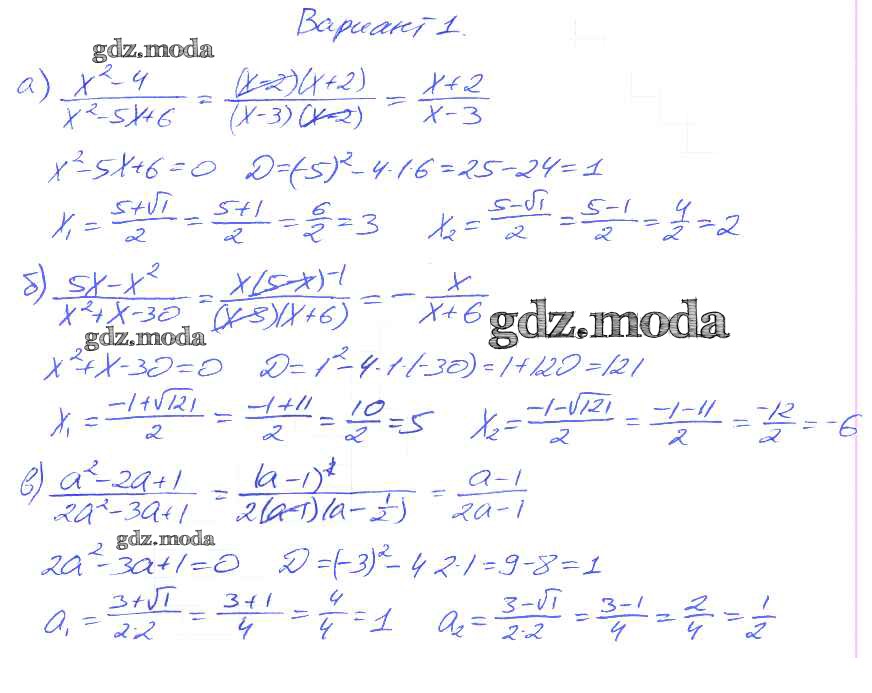 Вариант 1.
gdz.moda
а) (x²-4)/(x²-5x+6) = ((x-2)(x+2))/((x-3)(x-2)) = (x+2)/(x-3)
x²-5x+6=0 D=(-5)²-4·1·6=25-24=1
x₁ = (5+√1)/2 = (5+1)/2 = 6/2 = 3 x₂ = (5-√1)/2 = (5-1)/2 = 4/2 = 2
б) (5x-x²)/(x²+x-30) = (x(5-x)⁻¹)/((x-5)(x+6)) = - x/(x+6)
gdz.moda
gdz.moda
x²+x-30=0 D=1²-4·1·(-30)=1+120=121
x₁ = (-1+√121)/2 = (-1+11)/2 = 10/2 = 5 x₂ = (-1-√121)/2 = (-1-11)/2 = -12/2 = -6
в) (a²-2a+1)/(2a²-3a+1) = (a-1)²/(2(a-1)(a-1/2)) = (a-1)/(2a-1)
gdz.moda
2a²-3a+1=0 D=(-3)²-4·2·1=9-8=1
a₁ = (3+√1)/(2·2) = (3+1)/4 = 4/4 = 1 a₂ = (3-√1)/(2·2) = (3-1)/4 = 2/4 = 1/2